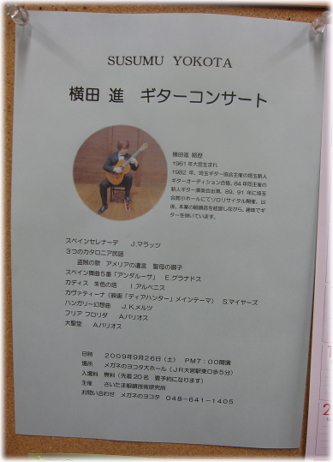 SUSUMU YOKOTA
横田 進 ギターコンサート
横田進 略歴
1961年大宮生まれ
1982年、埼玉ギター協会主催の埼玉新人
ギターオーディション合格。84年同主催の
新人ギター演奏会出演。89、91年に埼玉
会館小ホールにてソロリサイタル開催。以
後、本業の眼鏡店を経営しながら、趣味でギ
ターを弾いています。
スペインセレナーデ J.マラッツ
3つのカタロニア民謡
盗賊の歌 アメリアの遺言 聖母の御子
スペイン舞曲5番「アンダルーサ」 E.グラナドス
カディス 朱色の塔 I.アルベニス
カヴァティーナ(映画「ディアハンター」メインテーマ) S.マイヤーズ
ハンガリー幻想曲 J.K.メルツ
フリア フロリダ A.バリオス
大聖堂 A.バリオス
日時 2009年9月26日(土) PM7:00開演
場所 メガネのヨコタ大ホール(JR大宮駅東口歩5分)
入場料 無料(先着20名 要予約になります)
主催 さいたま眼鏡技術研究所
お問い合わせ メガネのヨコタ 048-641-1405